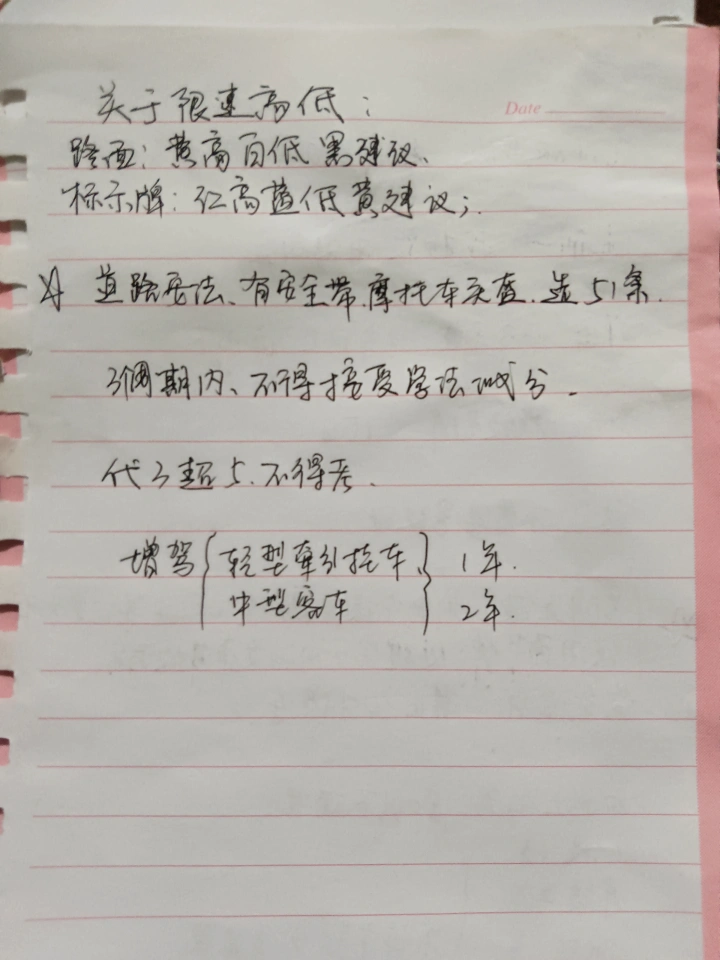 关于限速高低：
Date
路面：黄高白低黑建议、
标示牌：红高蓝低黄建议；
道路安法、有安全带、摩托车头盔、选51条.
3个周期内、不得接受学法减分.
代3超5、不得考.
增驾{轻型牵引挂车、}1年.
中型客车 2年.